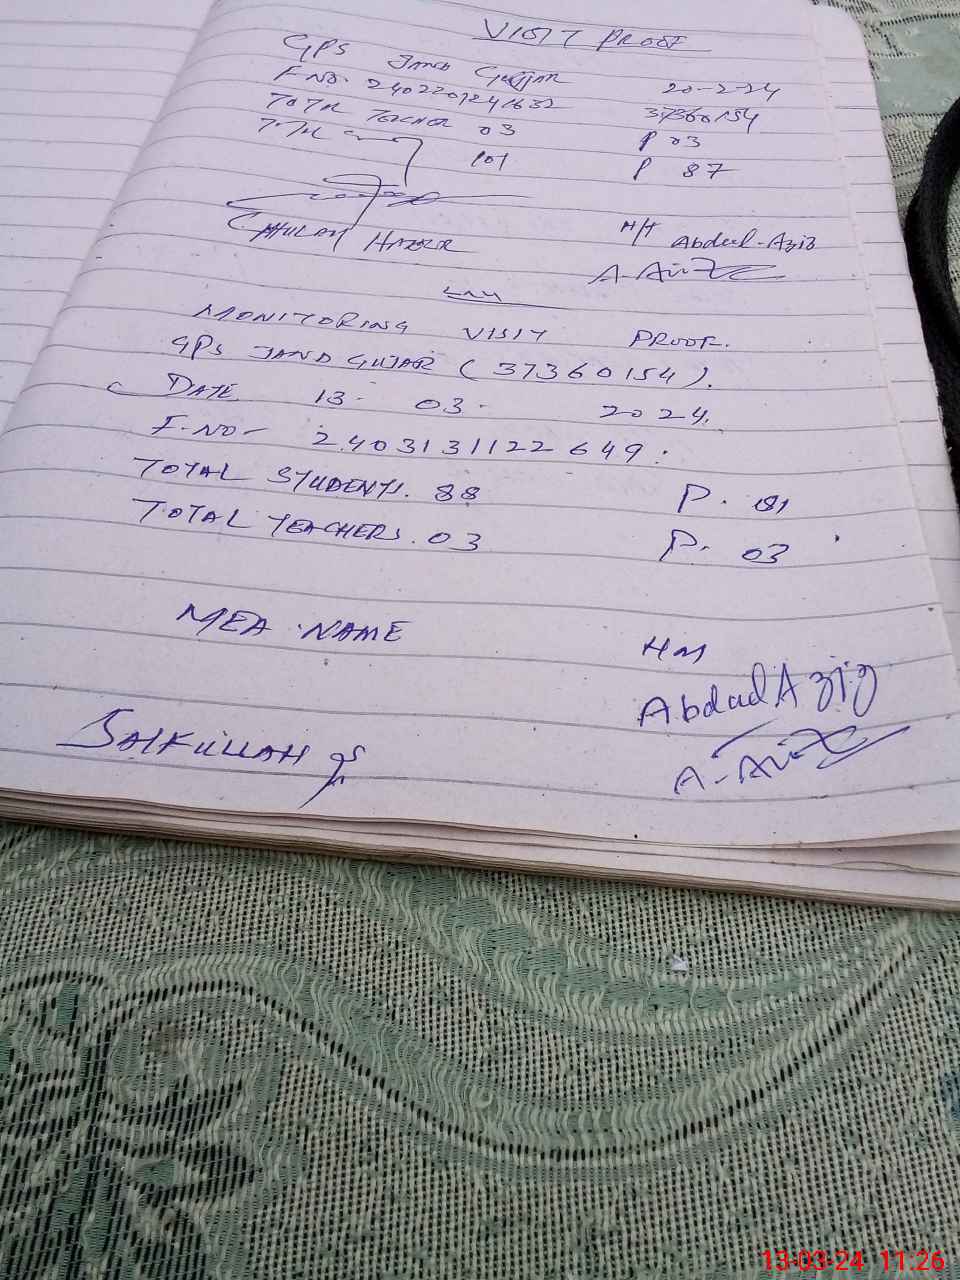 VISIT PROOF
GPS JAND Gujjar 20-2-24
F NO. 2402201241632 37360154
TOTAL TEACHER 03 P 03
TOTAL 101 P 87
GHULAM HAZOOR H/T Abdul-Aziz
A-Aziz
MONITORING VISIT PROOF.
GPS JAND GUJAR (37360154).
DATE 13- 03- 2024.
F.NO- 2403131122649:
TOTAL STUDENTS. 88 P. 81
TOTAL TEACHERS. 03 P. 03
MEA NAME HM
SAIFULLAH Abdul Aziz
A-Aziz
13-03-24 11:26